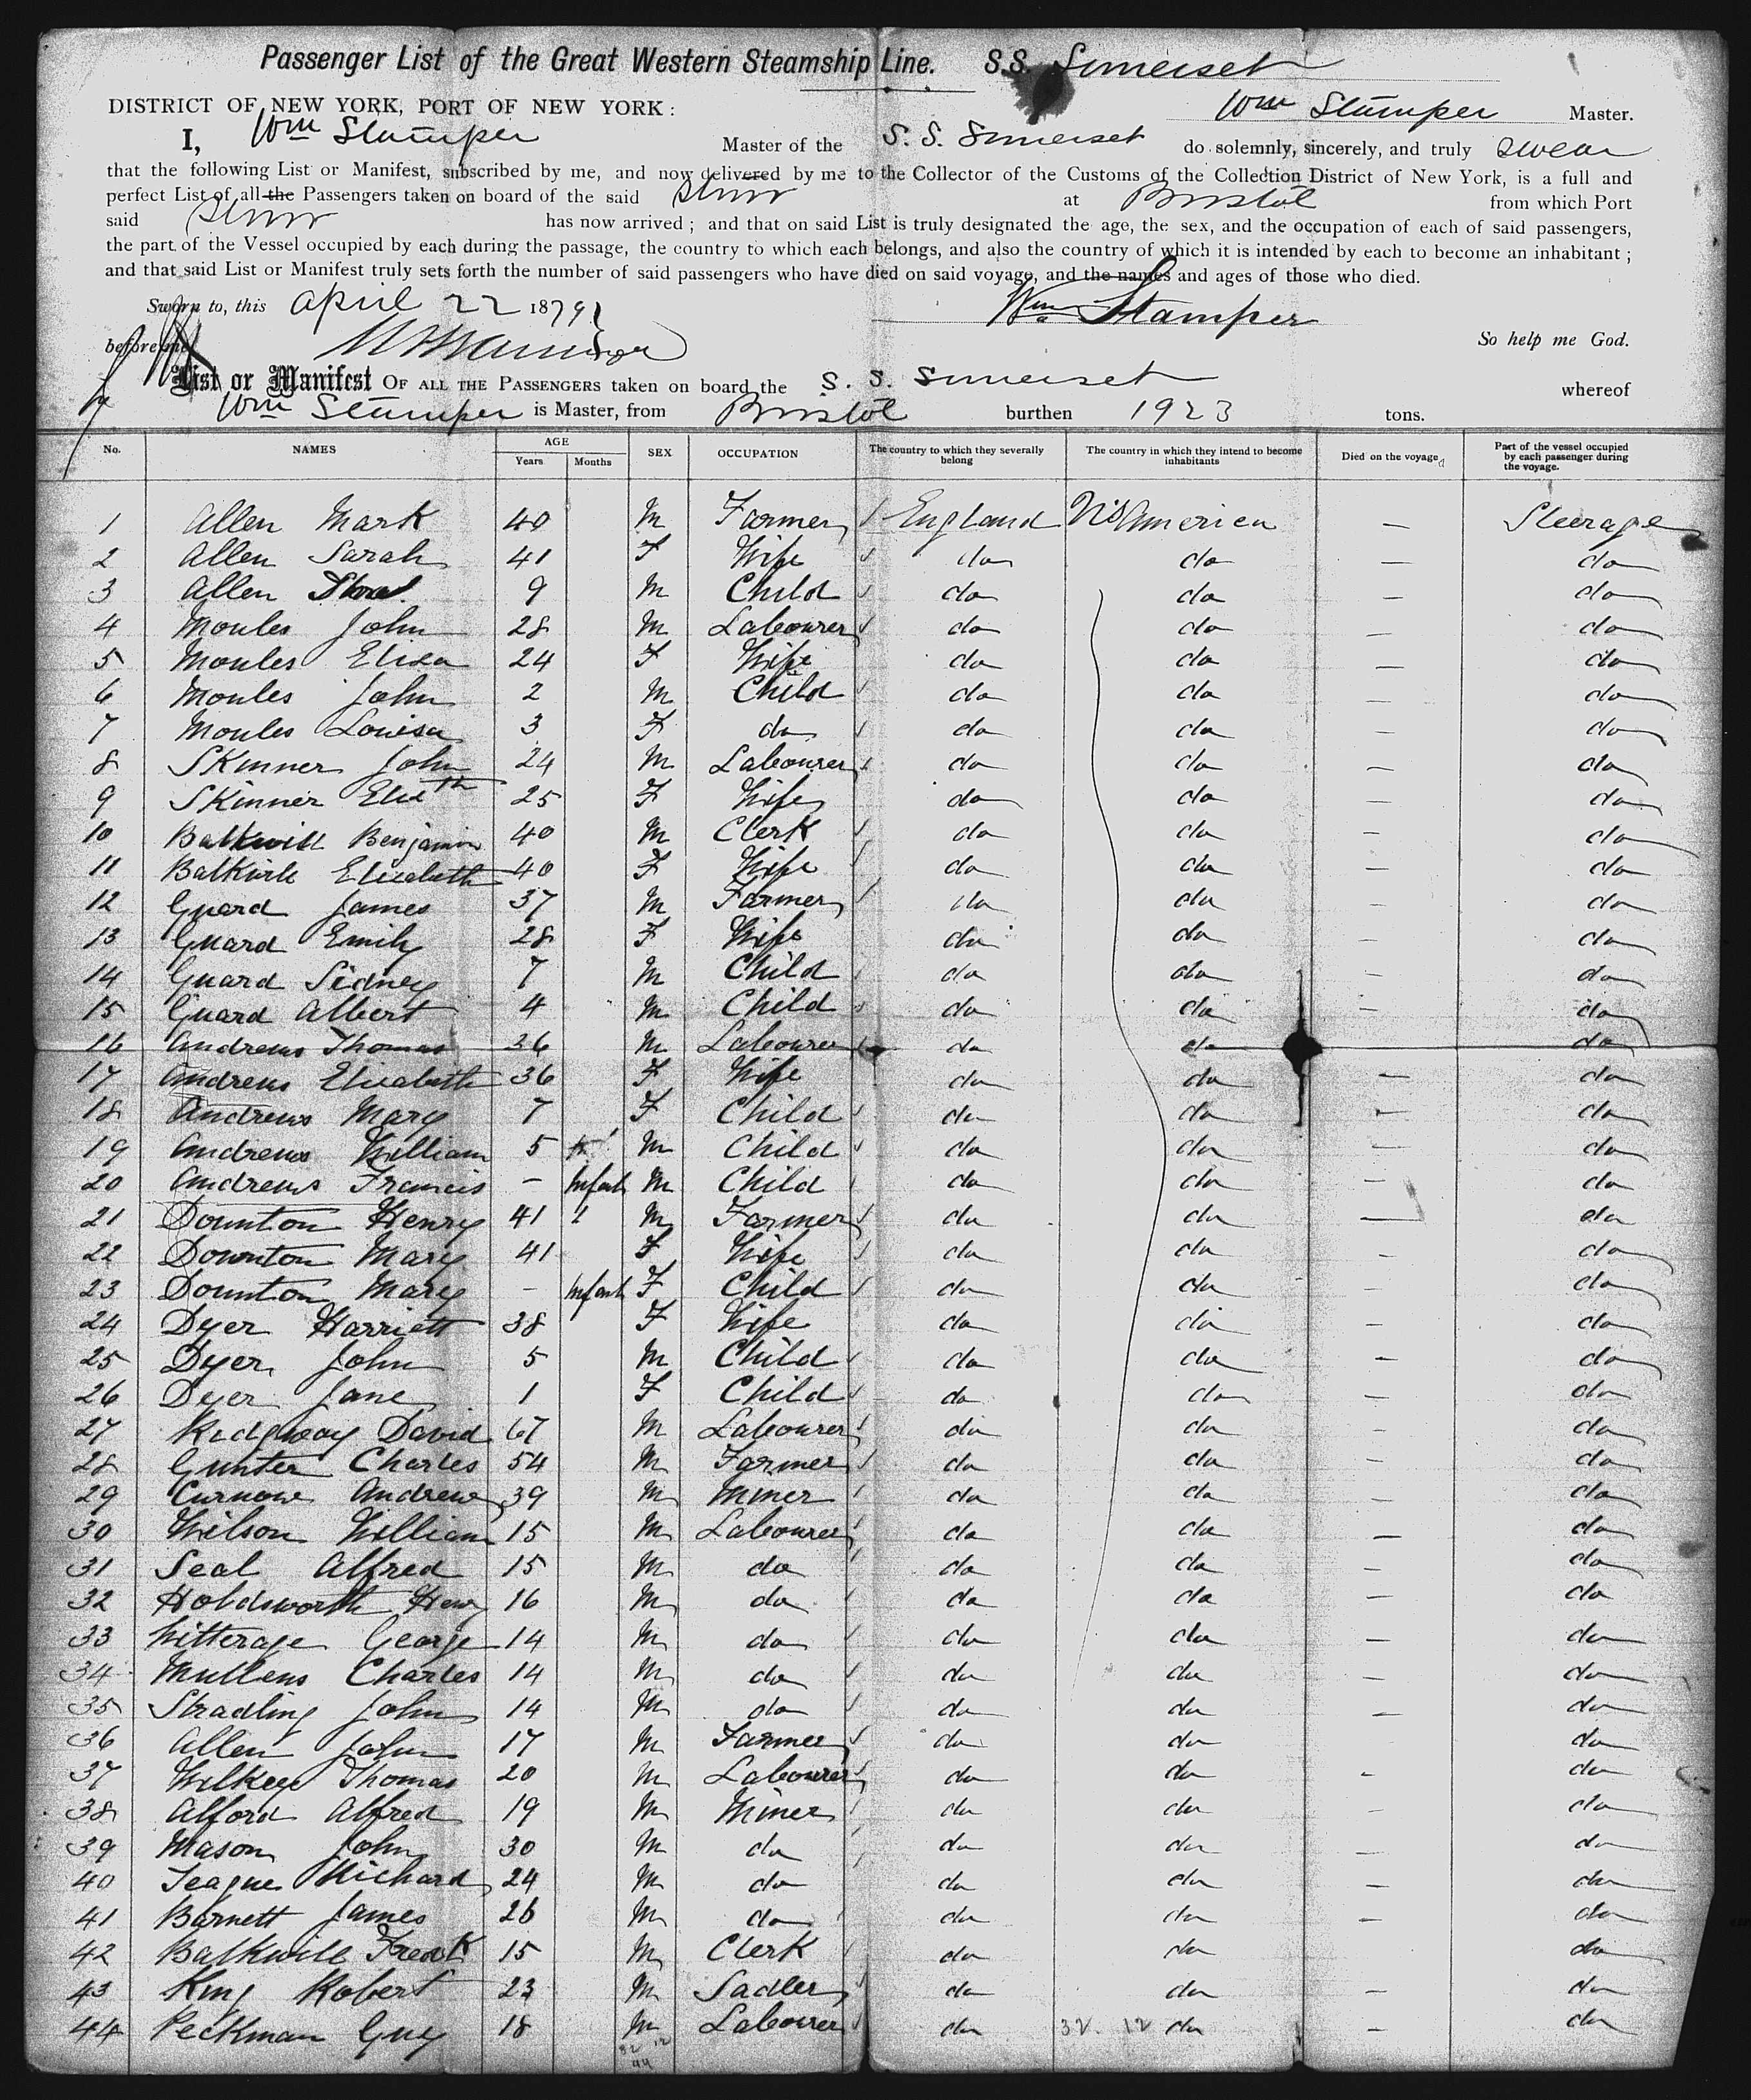 Passenger List of the Great Western Steamship Line. S.S. Somerset
DISTRICT OF NEW YORK, PORT OF NEW YORK: Wm Stamper Master.
I, Wm Stamper Master of the S. S. Somerset do solemnly, sincerely, and truly swear
that the following List or Manifest, subscribed by me, and now delivered by me to the Collector of the Customs of the Collection District of New York, is a full and
perfect List of all the Passengers taken on board of the said Stmr at Bristol from which Port
said Stmr has now arrived; and that on said List is truly designated the age, the sex, and the occupation of each of said passengers,
the part of the Vessel occupied by each during the passage, the country to which each belongs, and also the country of which it is intended by each to become an inhabitant;
and that said List or Manifest truly sets forth the number of said passengers who have died on said voyage, and the names and ages of those who died.
Sworn to, this April 22 1879 Wm Stamper
before me So help me God.
List or Manifest OF ALL THE PASSENGERS taken on board the S. S. Somerset whereof
Wm Stamper is Master, from Bristol burthen 1923 tons.
No. NAMES AGE Years Months SEX OCCUPATION The country to which they severally belong The country in which they intend to become inhabitants Died on the voyage Part of the vessel occupied by each passenger during the voyage.
1 Allen Mark 40 M Farmer England America — Steerage
2 Allen Sarah 41 F Wife do do — do
3 Allen 9 M Child do do — do
4 Moules John 28 M Labourer do do — do
5 Moules Eliza 24 F Wife do do — do
6 Moules John 2 M Child do do — do
7 Moules Louisa 3 F do do do — do
8 Skinner John 24 M Labourer do do — do
9 Skinner Elizth 25 F Wife do do — do
10 Balkwill Benjamin 40 M Clerk do do — do
11 Balkwill Elizabeth 40 F Wife do do — do
12 Guard James 37 M Farmer do do — do
13 Guard Emily 28 F Wife do do — do
14 Guard Sidney 7 M Child do do — do
15 Guard Albert 4 M Child do do — do
16 Andrews Thomas 36 M Labourer do do do
17 Andrews Elizabeth 36 F Wife do do — do
18 Andrews Mary 7 F Child do do — do
19 Andrews William 5 M Child do do — do
20 Andrews Francis - Infant M Child do do — do
21 Dounton Henry 41 M Farmer do do — do
22 Dounton Mary 41 F Wife do do — do
23 Dounton Mary - Infant F Child do do — do
24 Dyer Harriett 38 F Wife do do — do
25 Dyer John 5 M Child do do — do
26 Dyer Jane 1 F Child do do — do
27 Ridgway David 67 M Labourer do do — do
28 Gunter Charles 54 M Farmer do do — do
29 Curnow Andrew 39 M Miner do do — do
30 Wilson William 15 M Labourer do do — do
31 Seal Alfred 15 M do do do — do
32 Holdsworth Henry 16 M do do do — do
33 Witterage George 14 M do do do — do
34 Mullens Charles 14 M do do do — do
35 Stradling John 14 M do do do — do
36 Allen John 17 M Farmer do do do
37 Wilkey Thomas 20 M Labourer do do - do
38 Alford Alfred 19 M Miner do do — do
39 Mason John 30 M do do do — do
40 Teague Richard 24 M do do do — do
41 Barnett James 26 M do do do — do
42 Balkwill Fredk 15 M Clerk do do do
43 King Robert 23 M Sadler do do — do
44 Peckman Guy 18 M Labourer do 32 12 do — do
32 12
44